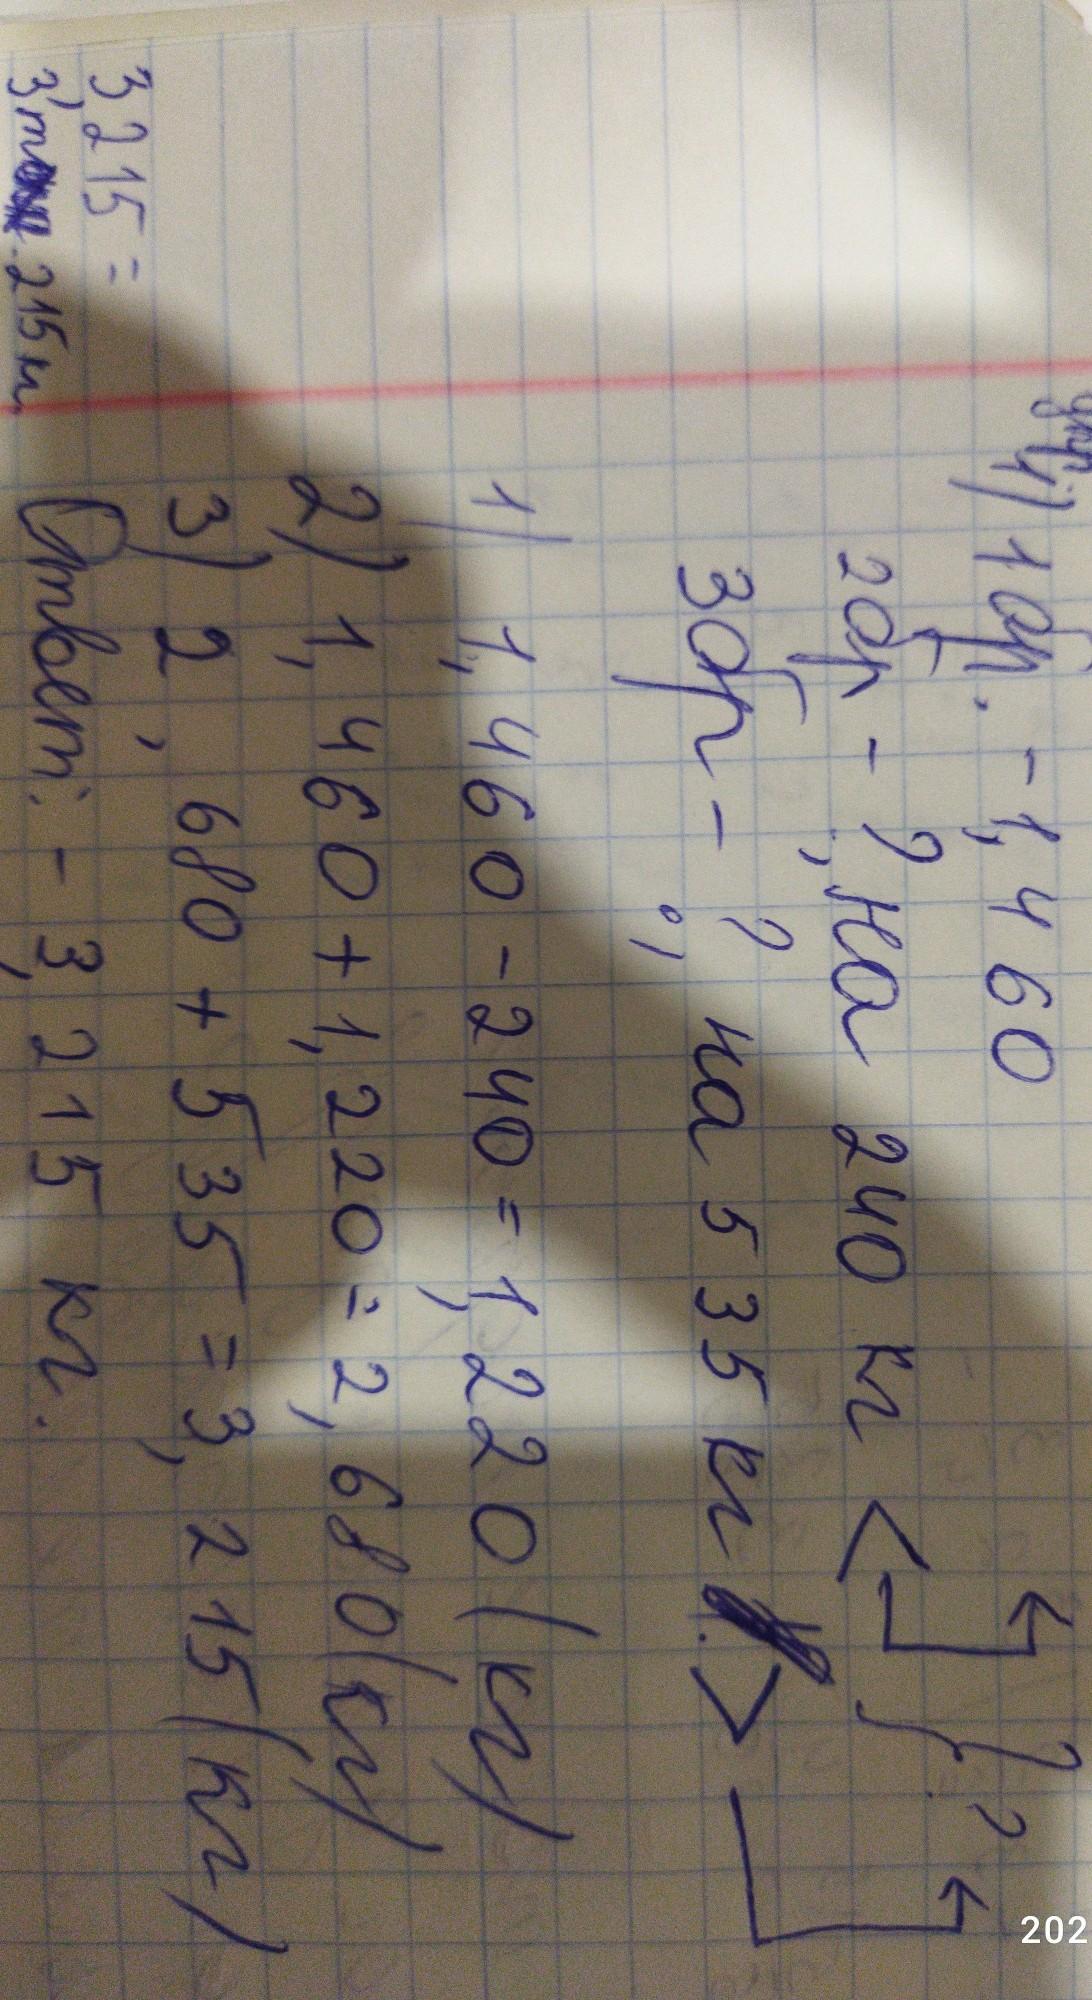 4) 1 др. - 1,460
2 др - ?, на 240 кг < } ?
3 др - ?; на 535 кг > ?
1) 1,460 - 240 = 1,220 (кг)
2) 1,460 + 1,220 = 2,680 (кг)
3) 2,680 + 535 = 3,215 (кг)
Ответ: - 3,215 кг.
3,215 =
3 т 215 кг
202